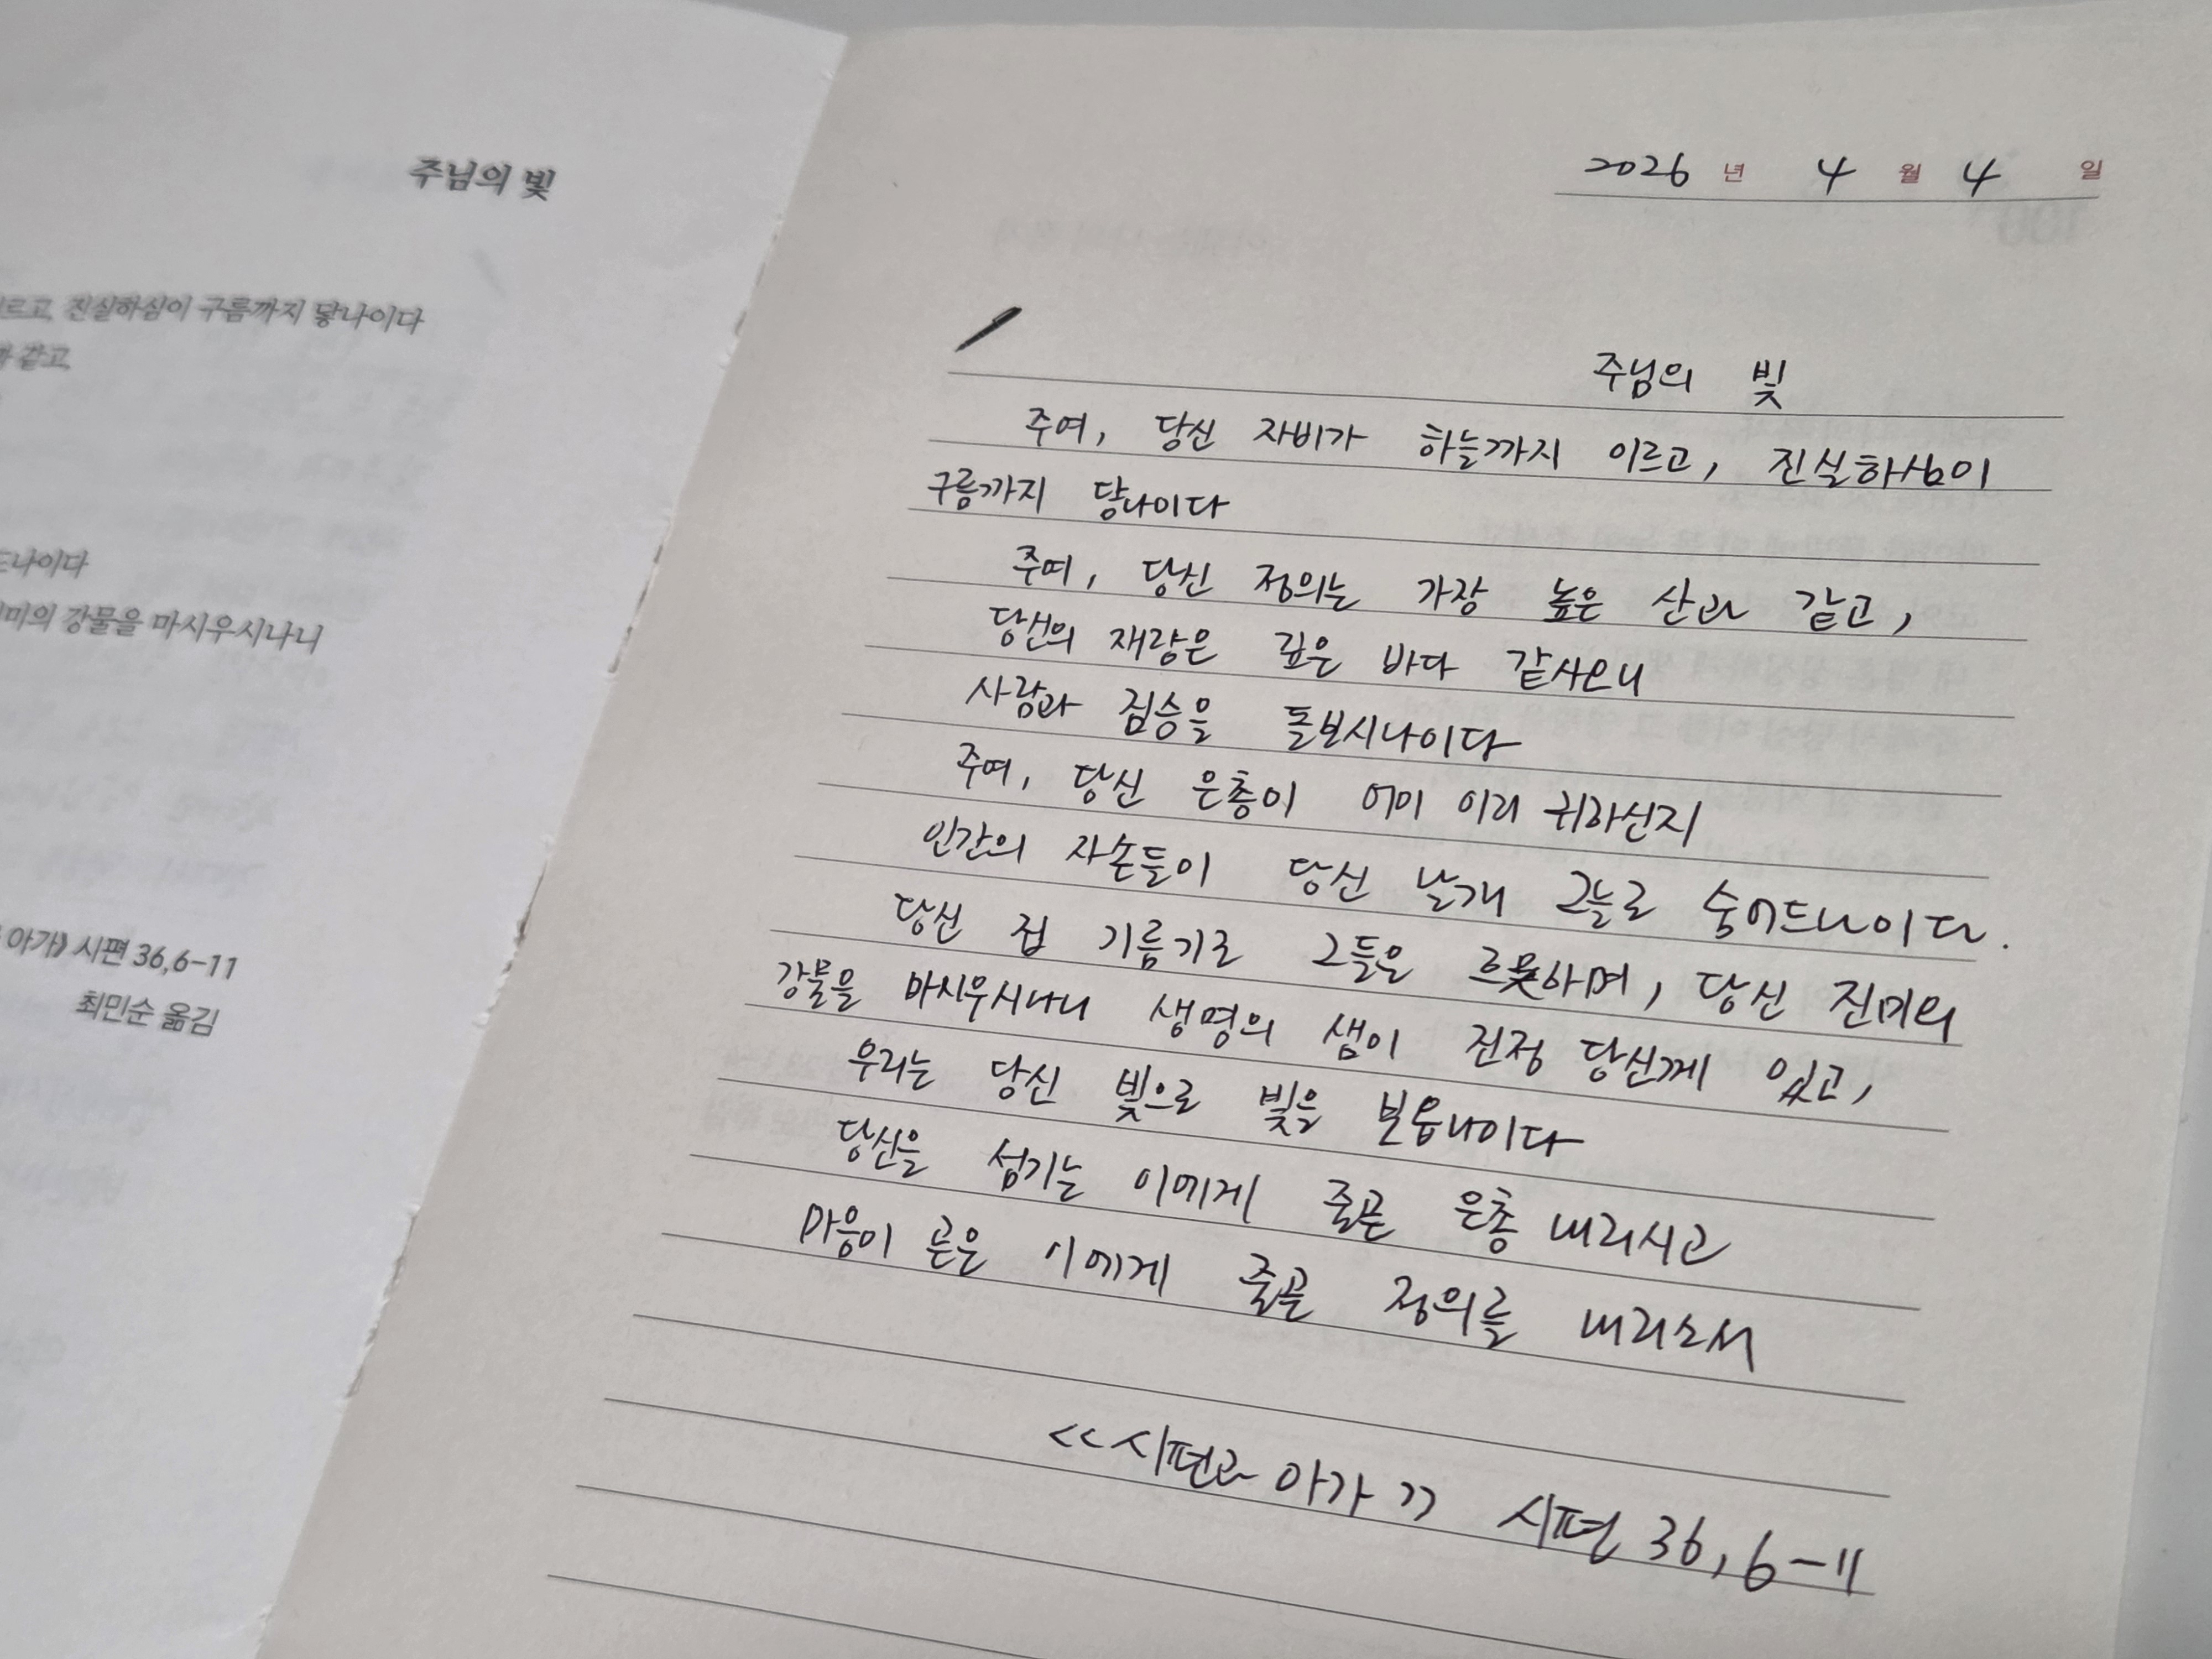 주님의 빛
르고, 진실하심이 구름까지 닿나이다
같고,
나이다
미의 강물을 마시우시나니
아가》 시편 36,6-11
최민순 옮김
2026 년 4 월 4 일
주님의 빛
주여, 당신 자비가 하늘까지 이르고, 진실하심이
구름까지 닿나이다
주여, 당신 정의는 가장 높은 산과 같고,
당신의 재량은 깊은 바다 같사오니
사람과 짐승을 돌보시나이다
주여, 당신 은총이 어미 이리 귀하신지
인간의 자손들이 당신 날개 그늘로 숨어드나이다.
당신 집 기름기로 그들은 흐뭇하며, 당신 진미의
강물을 마시우시나니 생명의 샘이 진정 당신께 있고,
우리는 당신 빛으로 빛을 보옵나이다
당신을 섬기는 이에게 줄곧 은총 내리시고
마음이 곧은 이에게 줄곧 정의를 내리소서
<<시편과 아가>> 시편 36,6-11